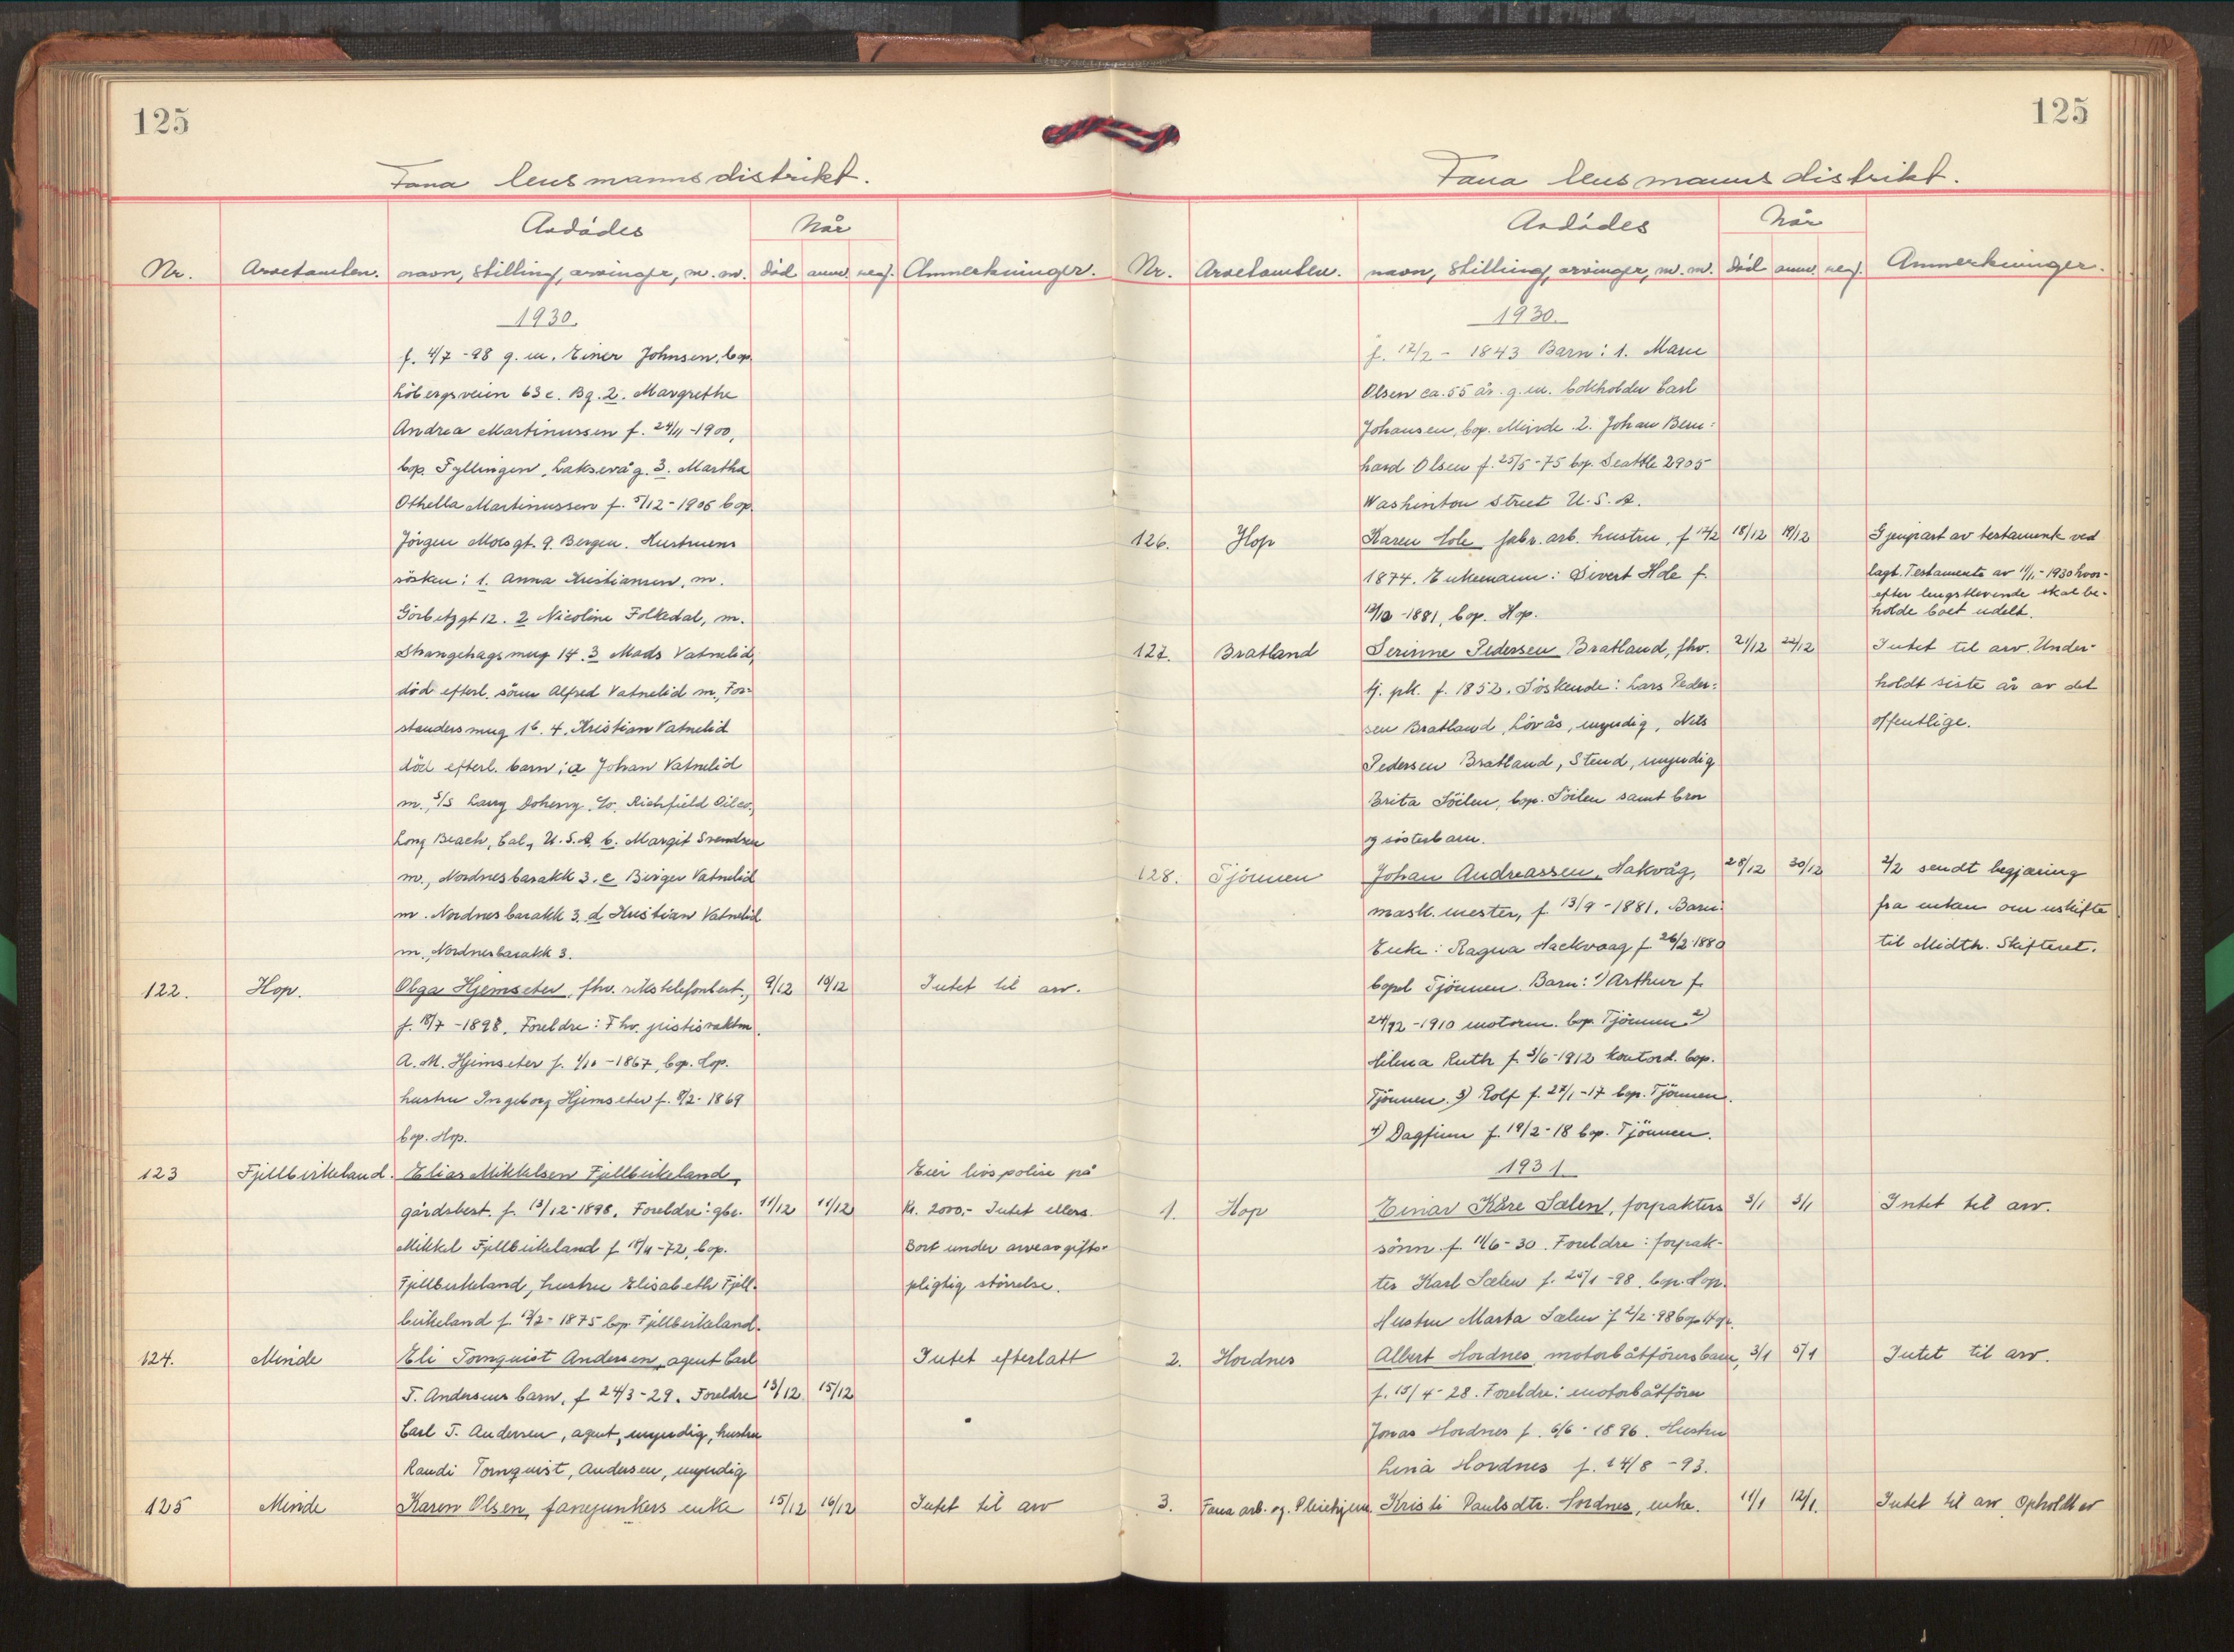 125
Fana lensmannsdistrikt.
Avdødes
Når
Nr. Arvetomten. navn, stilling, arvinger, m.m. død anm. reg. Anmerkninger.
1930.
f. 4/7-98 g.m. Einer Johnsen, bop.
höbergsveien 63c. Bg. 2. Margrethe
Andrea Martinussen f. 24/11-1900,
bop. Fyllingen, Laksevåg. 3. Martha
Othella Martinussen f. 5/12-1906 bop.
Jörgen Moesgt. 9. Bergen. Hustruens
sösken: 1. Anna Kristiansen, m.
Görbitzgt 12. 2 Nicoline Folkedal, m.
Strangehagsmug 14. 3 Mads Vatnelid,
död efterl. sönn Alfred Vatnelid m., For-
standersmug 16. 4. Kristian Vatnelid
död efterl. barn: a Johan Vatnelid
m., S/S Larry Doheny, Co. Richfield Oil co.,
Long Beach, Cal., U.S.A. b. Margit Svendsen
m., Nordnesbarakk 3. c Birger Vatnelid
m. Nordnesbarakk 3. d Kristian Vatnelid
m., Nordnesbarakk 3.
122. Hop. Olga Hjemseter, fhv. rikstelefonbest., 9/12 10/12 Intet til arv.
f. 18/7-1898. Foreldre: Fhv.
A. M. Hjemseter f. 1/10-1867, bop. Hop.
hustru Ingeborg Hjemseter f. 8/2-1869
bop. Hop.
123 Fjellbirkeland. Elias Mikkelsen Fjellbirkeland, Eier livspolise på
gårdsbest. f. 13/12-1898. Foreldre: gbr. 11/12 11/12 Kr. 2000,- Intet ellers.
Mikkel Fjellbirkeland f. 18/11-72, bop. Bort under arveavgifts-
Fjellbirkeland, hustru Elisabeth Fjell- pligtig störrelse.
birkeland f. 12/2-1875 bop. Fjellbirkeland.
124. Minde Eli Tornquist Andersen, agent Carl Intet efterlatt
T. Andersens barn, f 24/3-29. Foreldre 13/12 15/12
Carl T. Andersen, agent, myndig, hustru
Randi Tornquist, Andersen, myndig
125 Minde Karen Olsen, fanejunkers enke 15/12 16/12 Intet til arv
125
Fana lensmannsdistrikt.
Avdödes
Når
Nr. Arvetomten. navn, stilling, arvinger, m.m. död anm. reg. Anmerkninger.
1930.
f. 12/2-1843 Barn: 1. Marie
Olsen ca. 55 år. g.m. bokholder Carl
Johansen, bop. Minde. 2. Johan Bern:
hard Olsen f. 25/5-75 bp. Seattle 2905
Washinton Street U.S.A.
126. Hop Karen Hole, fabr. arb. hustru, f 12/2 18/12 19/12 Gjenpart av testamente ved
1874. Enkemann: Sivert Hole f. lagt. Testamente av 11/1-1930 hvor-
efter lengstlevende skal be-
12/10-1881, bop. Hop. holde boet udelt.
127. Bratland Serinne Pedersen Bratland, fhv. 21/12 22/12 Intet til arv. Under-
tj. pk. f. 1852. Söskende: Lars Peder: holdt siste år av det
sen Bratland, Lövås, myndig, Nils offentlige.
Pedersen Bratland, Stend, myndig
Brita Söilen, bop. Söilen samt bror
og sösterbarn.
128. Tjönnen Johan Andreassen, Hakvåg, 28/12 30/12 2/2 sendt begjæring
mask. mester, f 13/9-1881. Barn: fra enken om uskifte
Enke: Ragna Hackvaag f 26/2-1880 til Midth. Skifteret.
bopel Tjönnen. Barn: 1) Arthur f.
24/12-1910 motorm. bop. Tjönnen 2)
Hilma Ruth f. 3/6-1912 kontord. bop.
Tjönnen. 3) Rolf f. 27/1-17 bop. Tjönnen.
4) Dagfinn f. 19/2-18 bop. Tjönnen.
1931
1. Hop Einar Kåre Sælen, forpakters 3/1 3/1 Intet til arv.
sönn. f. 11/6-30. Foreldre: forpak-
ter Karl Sælen f. 25/1-98, bop. Hop.
Hustru Marta Sælen f 2/2-98 bop Hop.
2. Hordnes Albert Hordnes, motorbåtförers barn, 3/1 5/1 Intet til arv.
f. 15/4-28. Foreldre: motorbåtförer
Jonas Hordnes f. 6/6-1896. Hustru
Lina Hordnes f. 14/8-93.
3. Fana arb. og Pleiehjem Kristi Paulsdtr. Hordnes, enke. 11/1 12/1. Intet til arv. Opholdt av